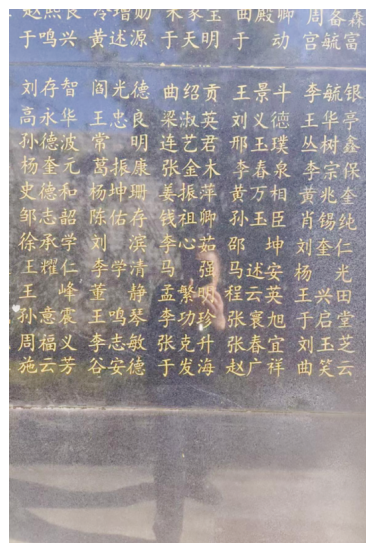 赵熙良 冷增勋 宋家宝 曲殿卿 周备森
于鸣兴 黄述源 于天明 于动 宫毓富
刘存智 阎光德 曲绍贡 王景斗 李毓银
高永华 王忠良 梁淑英 刘义德 王华亭
孙德波 常明 连艺君 邢玉璞 丛树鑫
杨奎元 葛振康 张金木 李春泉 李宗保
史德和 杨坤珊 姜振萍 黄万相 黄兆奎
邹志韶 陈佑存 钱祖卿 孙玉臣 肖锡纯
徐承学 刘滨 李心茹 邵坤 刘奎仁
王耀仁 李学清 马强 马述安 杨光
王峰 董静 孟繁明 程云英 王兴田
孙意震 王鸣琴 李功珍 张寰旭 于启堂
周福义 李志敏 张克升 张春宜 刘玉芝
施云芳 谷安德 于发海 赵广祥 曲笑云